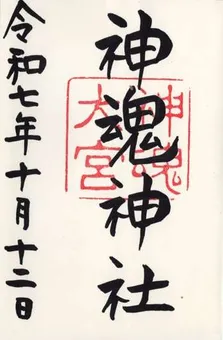 神魂神社
神魂
大宮
令和七年十月十二日